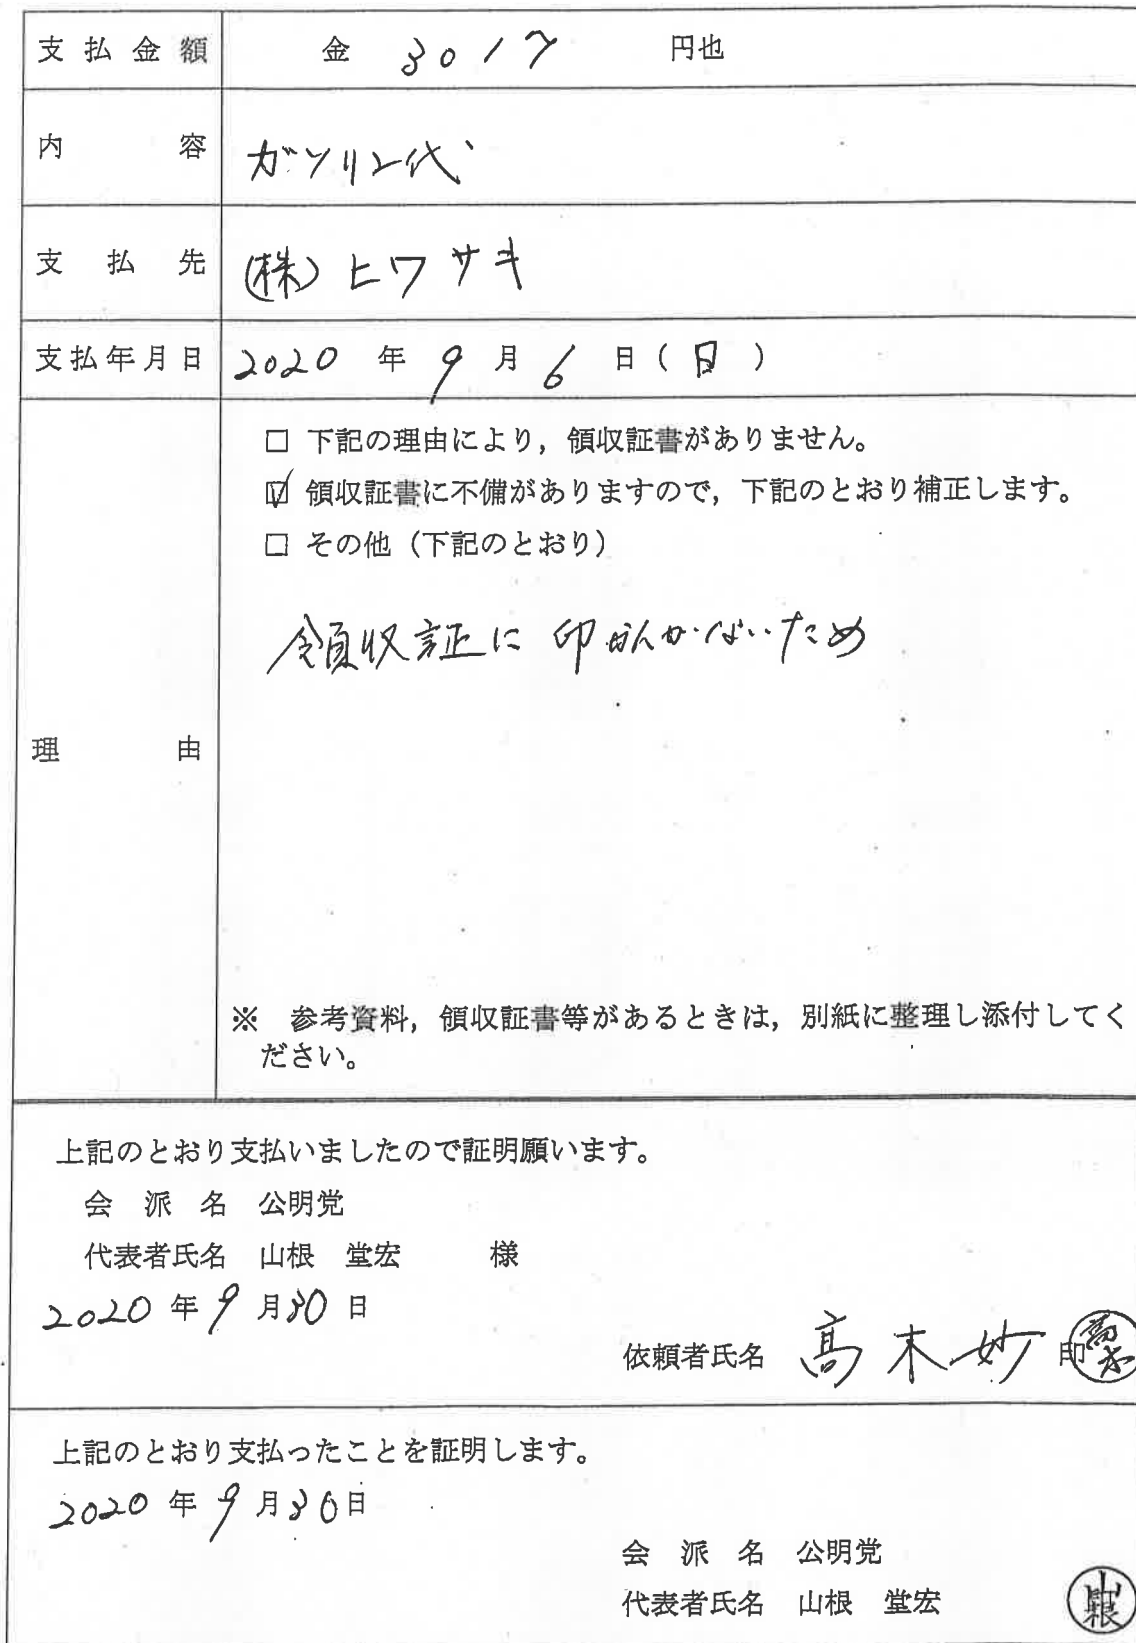 支払金額 金 3017 円也
内容 ガソリン代
支払先 (株)ヒワサキ
支払年月日 2020年9月6日(日)
□ 下記の理由により，領収証書がありません。
☑ 領収証書に不備がありますので，下記のとおり補正します。
□ その他（下記のとおり）
領収証に印かんがないため
理由
※ 参考資料，領収証書等があるときは，別紙に整理し添付してく
ださい。
上記のとおり支払いましたので証明願います。
会派名 公明党
代表者氏名 山根 堂宏 様
2020年9月30日
依頼者氏名 高木妙 印 高木
上記のとおり支払ったことを証明します。
2020年9月30日
会派名 公明党
代表者氏名 山根 堂宏 山根